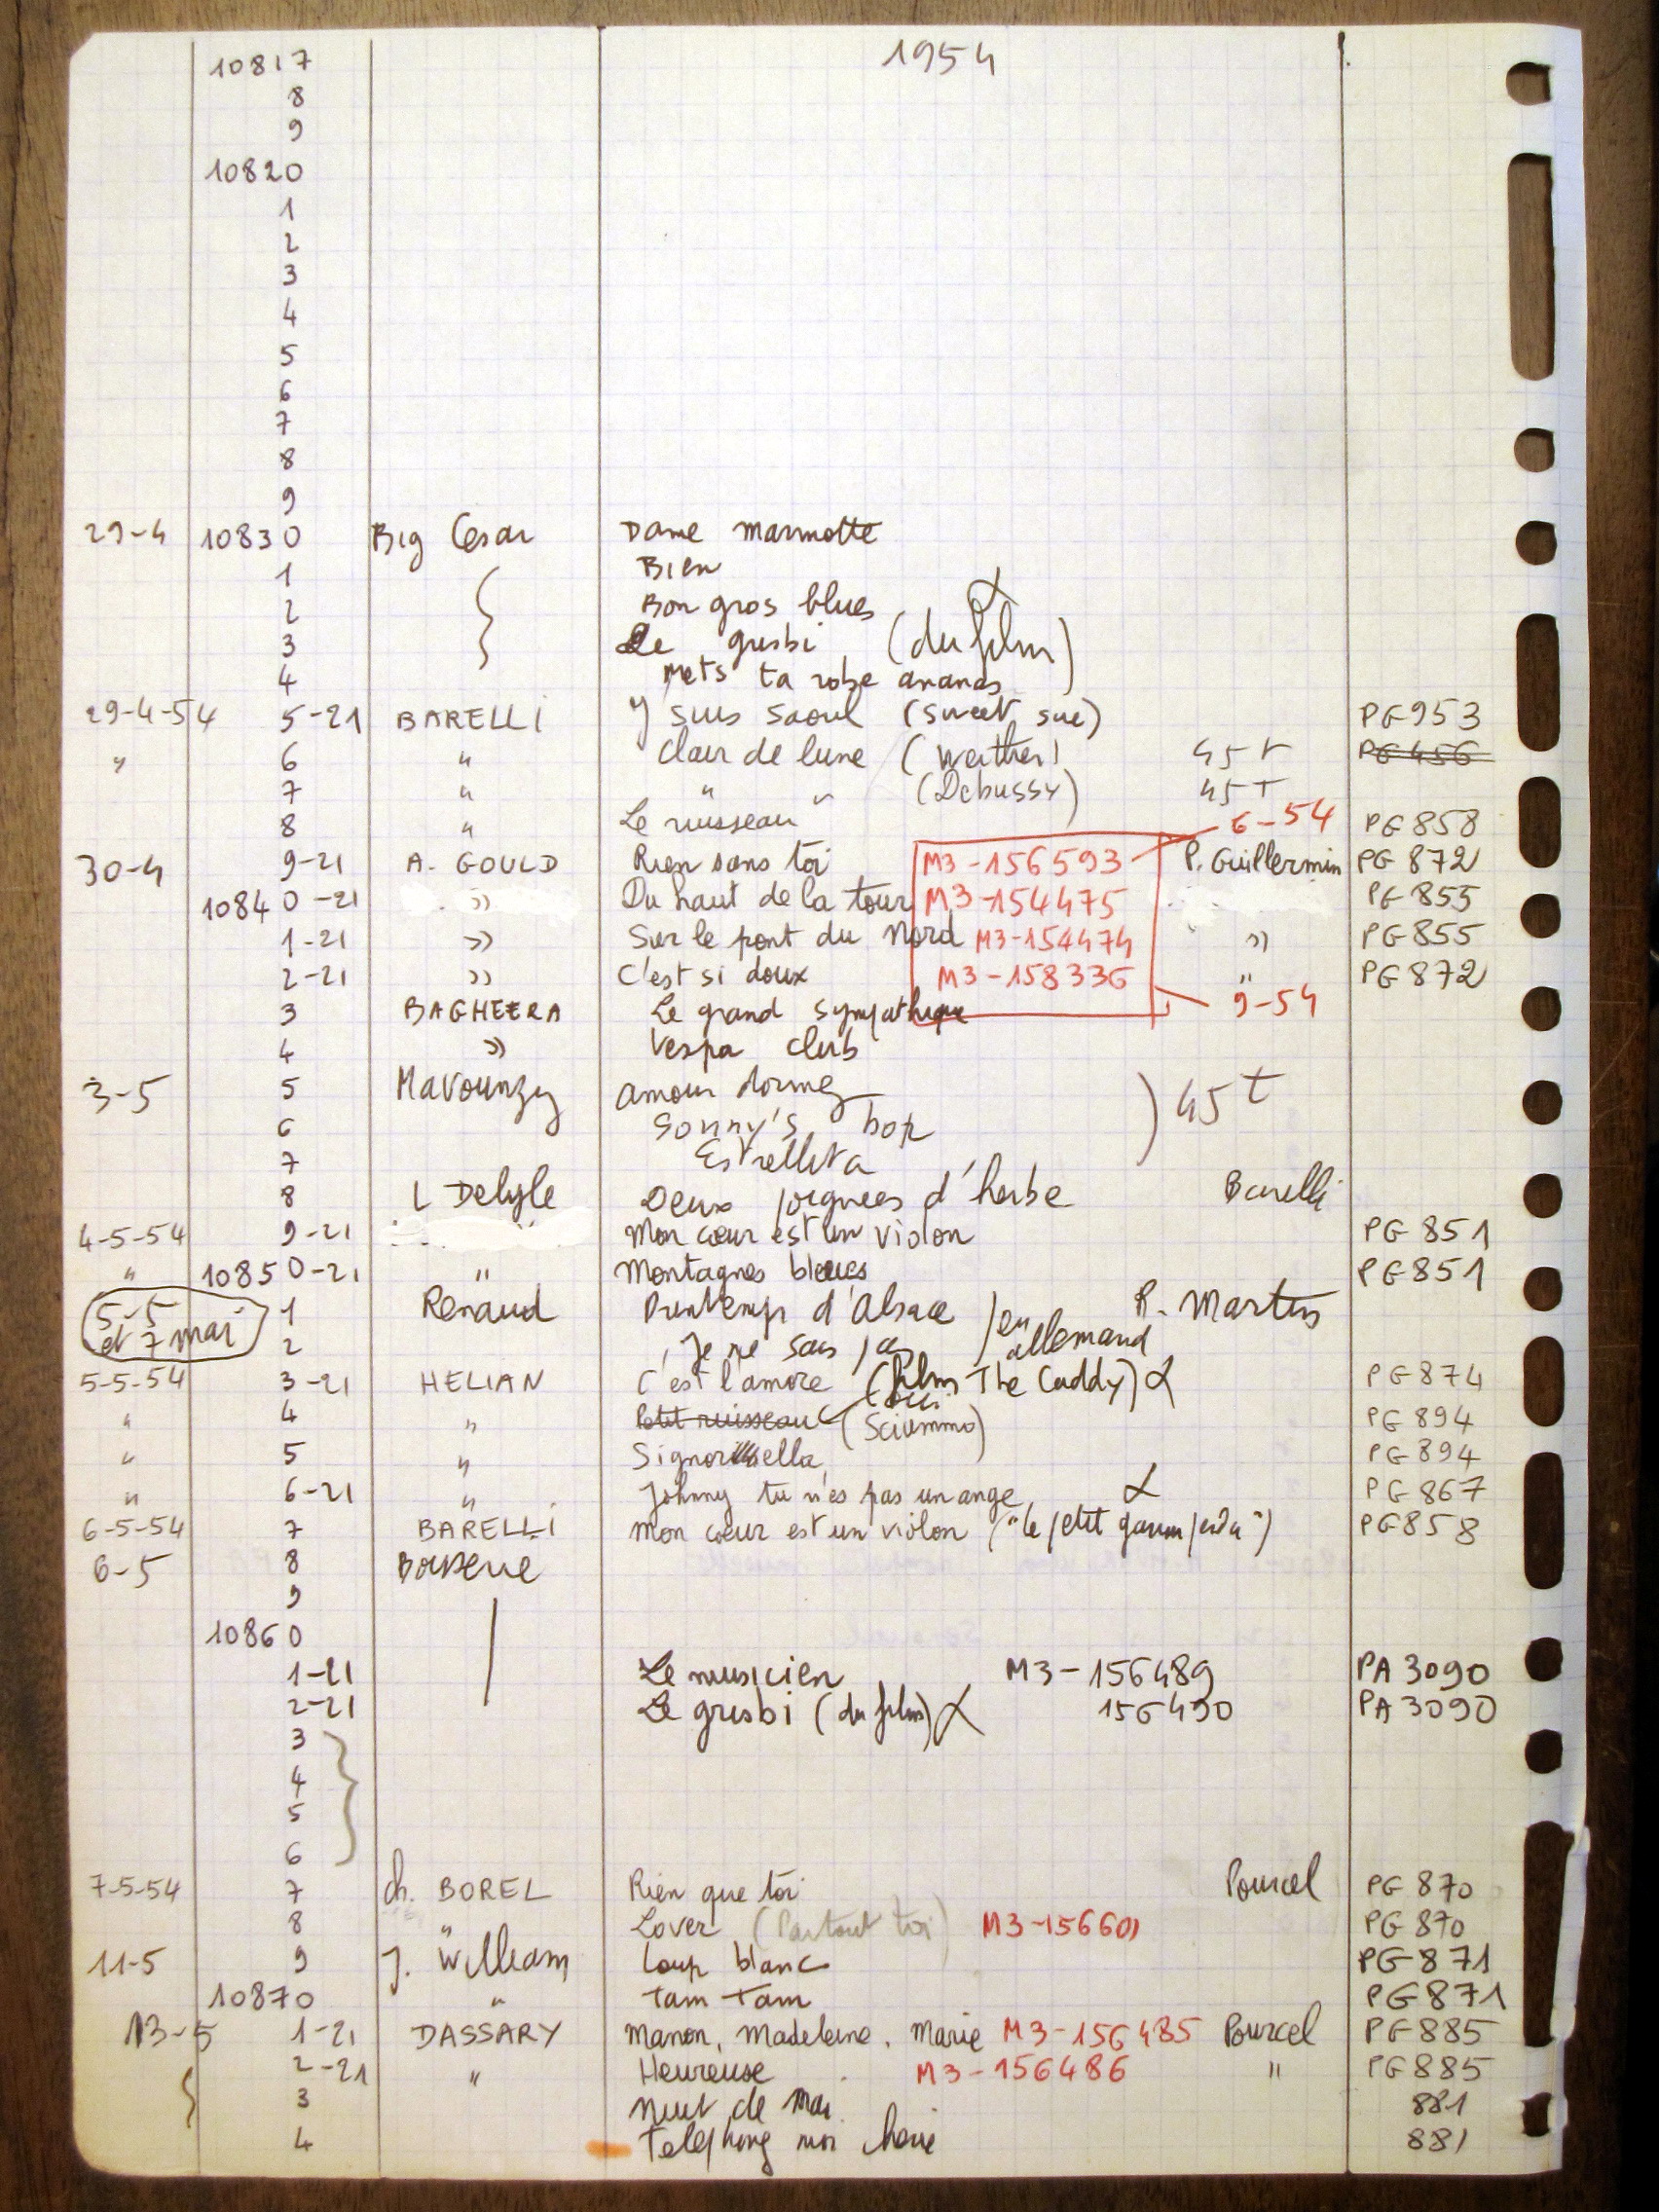 1954
10817
8
9
10820
1
2
3
4
5
6
7
8
9
29-4 10830 Big Cesar Dame marmotte
1 Bien
2 Bon gros blues
3 Le grisbi (du film)
4 Mets ta robe ananas
29-4-54 5-21 BARELLI Y suis saoul (Sweet sue) PG 953
" 6 " Clair de lune (Werther) 45 T PG 456
7 " " " (Debussy) 45 T
8 " Le ruisseau 6-54 PG 858
30-4 9-21 A. GOULD Rien sans toi M3-156593 P. Guillermin PG 872
10840-21 " Du haut de la tour M3-154475 PG 855
1-21 " Sur le pont du Nord M3-154474 " PG 855
2-21 " C'est si doux M3-158336 " PG 872
3 BAGHEERA Le grand sympathique 9-54
4 " Vespa club
3-5 5 Mavounzy amour dormez ) 45 t
6 Sonny's bop
7 Estrellita
8 L Delyle Deux poignées d'herbe Barelli
4-5-54 9-21 " Mon cœur est un violon PG 851
" 10850-21 " Montagnes bleues PG 851
5-5 et 7 mai 1 Renaud Printemps d'Alsace / en allemand R. Martin
2 Je ne sais pas
5-5-54 3-21 HELIAN C'est l'amore (film The Caddy) α PG 874
" 4 " Petit ruisseau (Sciummo) oui PG 894
" 5 " Signorinella PG 894
" 6-21 " Johnny tu n'es pas un ange α PG 867
6-5-54 7 BARELLI Mon cœur est un violon ("le petit garçon perdu") PG 858
6-5 8
9
10860
1-21 Le musicien M3-156489 PA 3090
2-21 Le grisbi (du film) α 156490 PA 3090
3
4
5
6
7-5-54 7 ch. BOREL Rien que toi Pourcel PG 870
8 " Lover (Partout toi) M3-156601 PG 870
11-5 9 J. William Loup blanc PG 871
10870 " Tam Tam PG 871
13-5 1-21 DASSARY Manon, Madeleine, Marie M3-156485 Pourcel PG 885
2-21 " Heureuse M3-156486 " PG 885
3 Nuit de Mai 881
4 Telephone moi cherie 881